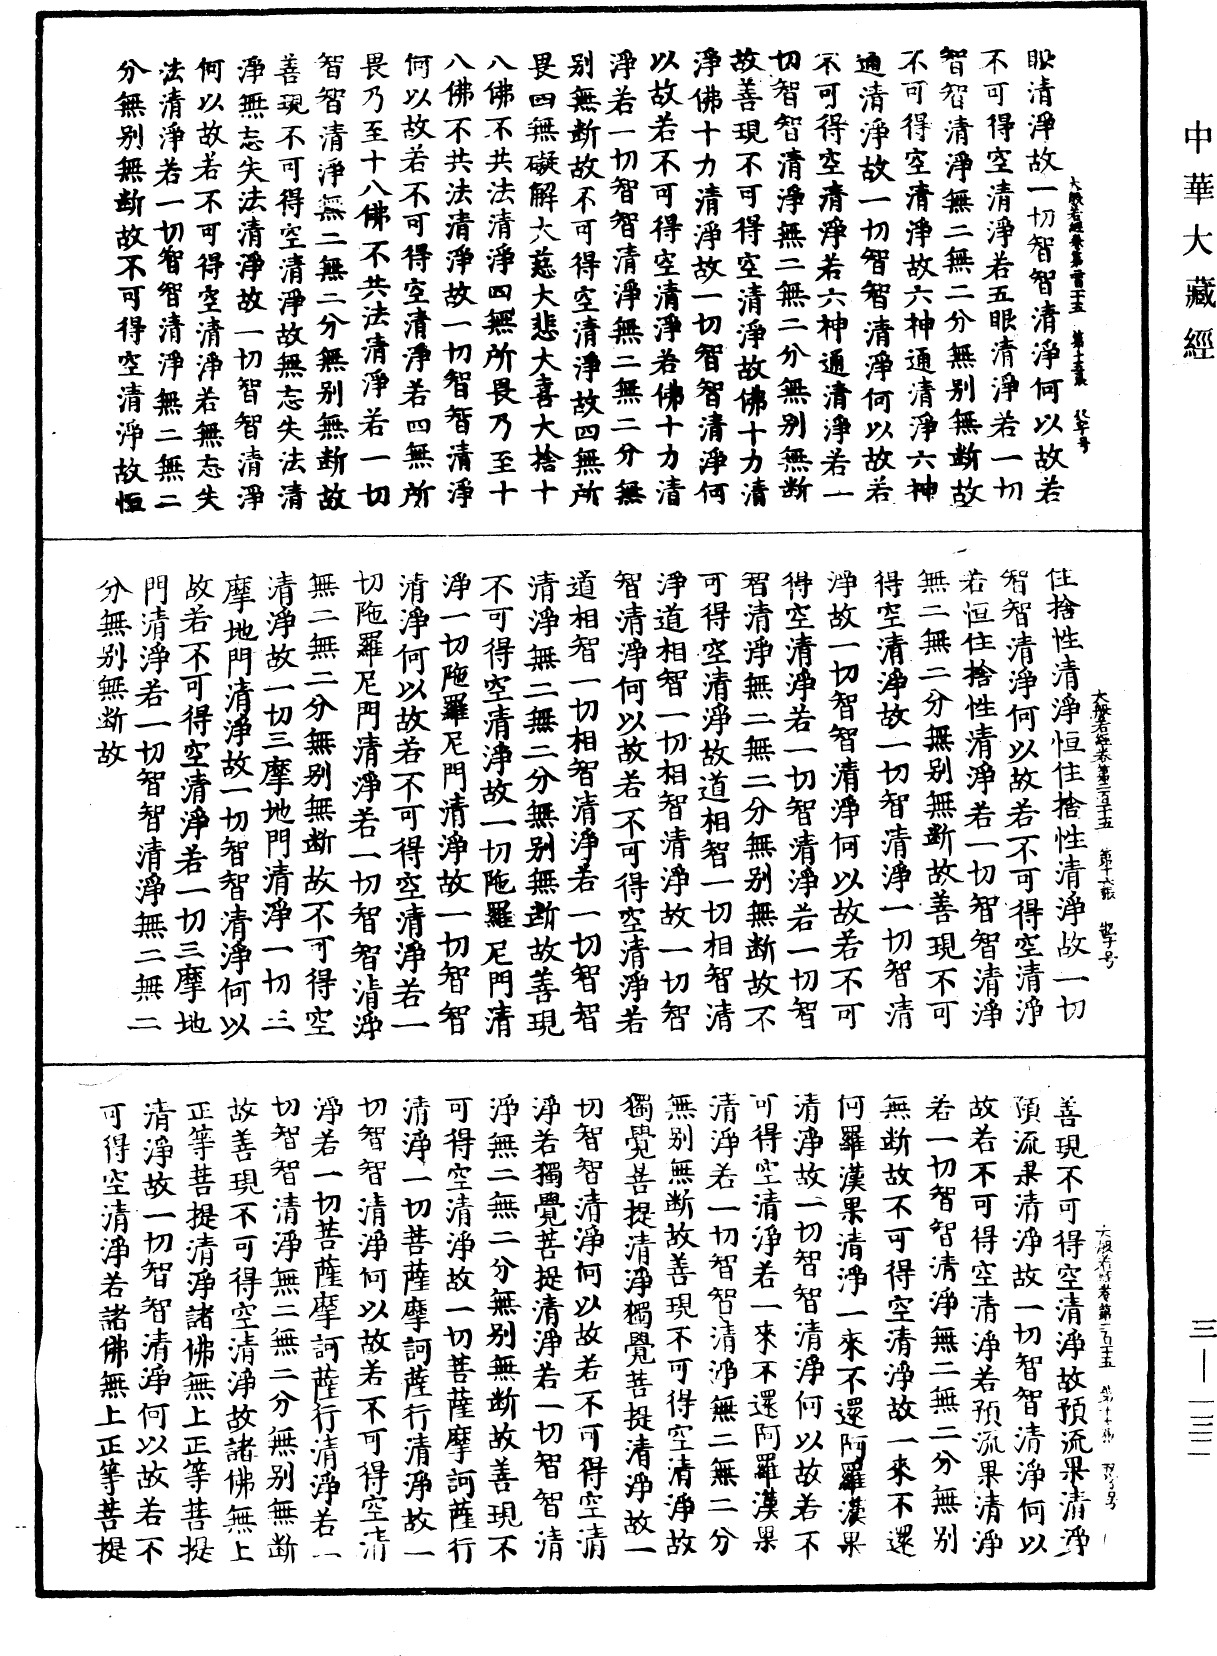 中華大藏經
眼清淨故一切智智清淨何以故若
不可得空清淨若五眼清淨若一切
智智清淨無二無二分無別無斷故
不可得空清淨故六神通清淨六神
通清淨故一切智智清淨何以故若
不可得空清淨若六神通清淨若一
切智智清淨無二無二分無別無斷
故善現不可得空清淨故佛十力清
淨佛十力清淨故一切智智清淨何
以故若不可得空清淨若佛十力清
淨若一切智智清淨無二無二分無
別無斷故不可得空清淨故四無所
畏四無礙解大慈大悲大喜大捨十
八佛不共法清淨四無所畏乃至十
八佛不共法清淨故一切智智清淨
何以故若不可得空清淨若四無所
畏乃至十八佛不共法清淨若一切
智智清淨無二無二分無別無斷故
善現不可得空清淨故無忘失法清
淨無忘失法清淨故一切智智清淨
何以故若不可得空清淨若無忘失
法清淨若一切智智清淨無二無二
分無別無斷故不可得空清淨故恒
住捨性清淨恒住捨性清淨故一切
智智清淨何以故若不可得空清淨
若恒住捨性清淨若一切智智清淨
無二無二分無別無斷故善現不可
得空清淨故一切智清淨一切智清
淨故一切智智清淨何以故若不可
得空清淨若一切智清淨若一切智
智清淨無二無二分無別無斷故不
可得空清淨故道相智一切相智清
淨道相智一切相智清淨故一切智
智清淨何以故若不可得空清淨若
道相智一切相智清淨若一切智智
清淨無二無二分無別無斷故善現
不可得空清淨故一切陁羅尼門清
淨一切陁羅尼門清淨故一切智智
清淨何以故若不可得空清淨若一
切陁羅尼門清淨若一切智智清淨
無二無二分無別無斷故不可得空
清淨故一切三摩地門清淨一切三
摩地門清淨故一切智智清淨何以
故若不可得空清淨若一切三摩地
門清淨若一切智智清淨無二無二
分無別無斷故
善現不可得空清淨故預流果清淨
預流果清淨故一切智智清淨何以
故若不可得空清淨若預流果清淨
若一切智智清淨無二無二分無別
無斷故不可得空清淨故一來不還
阿羅漢果清淨一來不還阿羅漢果
清淨故一切智智清淨何以故若不
可得空清淨若一來不還阿羅漢果
清淨若一切智智清淨無二無二分
無別無斷故善現不可得空清淨故
獨覺菩提清淨獨覺菩提清淨故一
切智智清淨何以故若不可得空清
淨若獨覺菩提清淨若一切智智清
淨無二無二分無別無斷故善現不
可得空清淨故一切菩薩摩訶薩行
清淨一切菩薩摩訶薩行清淨故一
切智智清淨何以故若不可得空清
淨若一切菩薩摩訶薩行清淨若一
切智智清淨無二無二分無別無斷
故善現不可得空清淨故諸佛無上
正等菩提清淨諸佛無上正等菩提
清淨故一切智智清淨何以故若不
可得空清淨若諸佛無上正等菩提
三—一三二